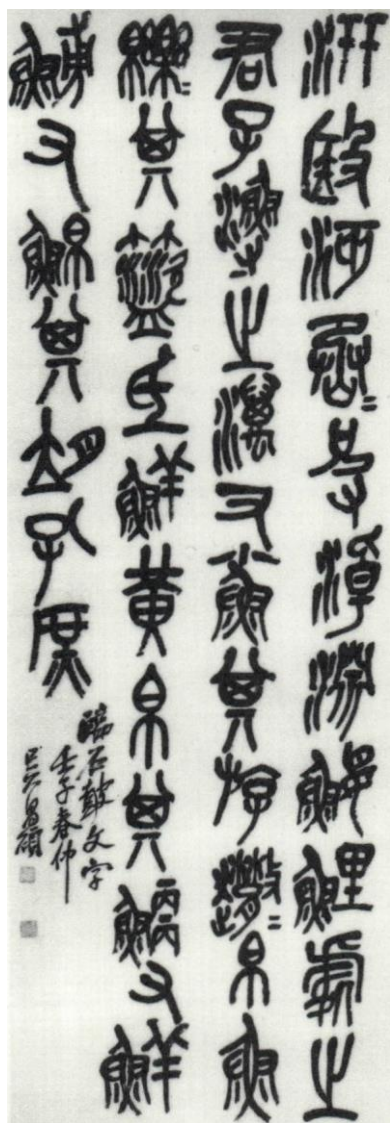 汧殹沔丞=皮淖淵鰋鯉處之
君子漁之澫又小魚其斿趣=帛魚
皪=其盜氐鮮黃帛其鯿又鮮
鱄又鮊其胡孔庶
臨石鼓文字
壬子春仲
吳昌碩